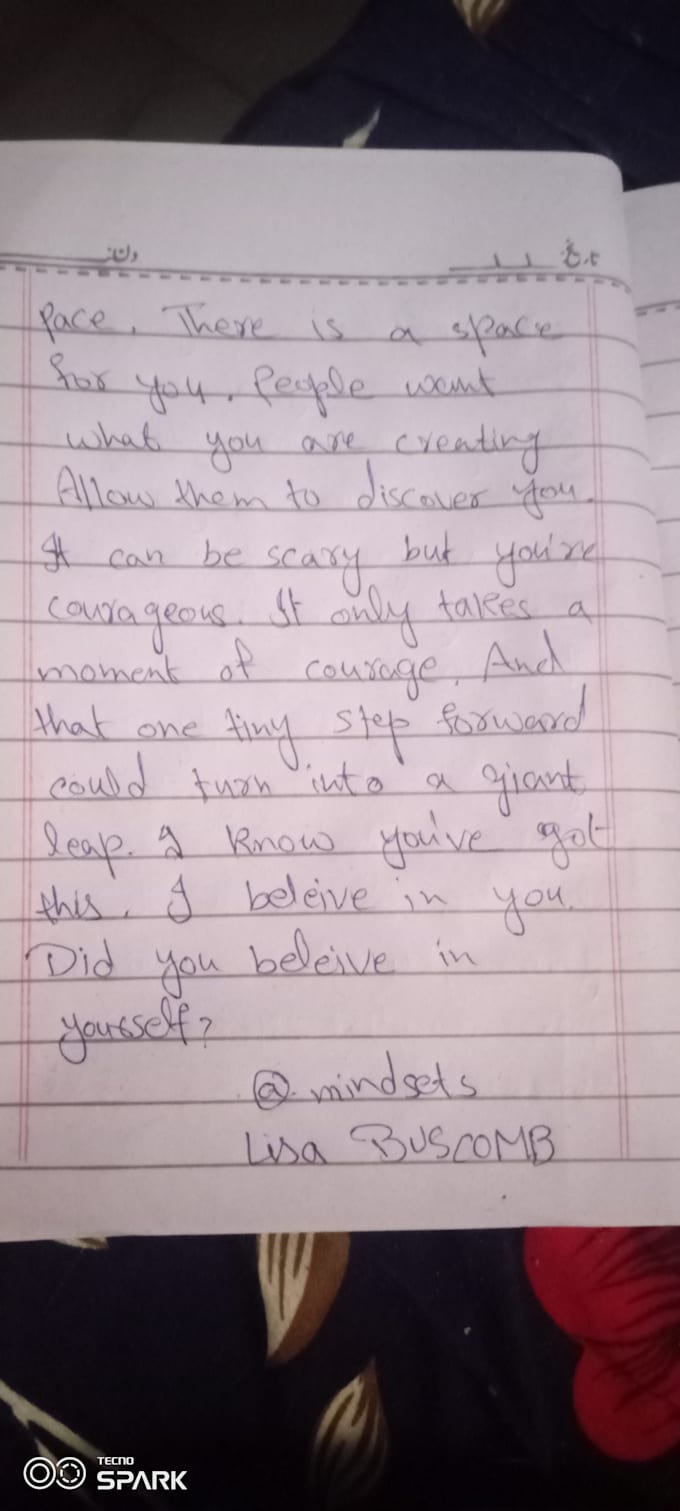 دن: تاریخ
Pace. There is a space
for you. People want
what you are creating
Allow them to discover you.
It can be scary but you're
courageous. It only takes a
moment of courage. And
that one tiny step forward
could turn into a giant
leap. I know you've got
this. I beleive in you.
Did you beleive in
yourself?
@ mindsets
Lisa BUSCOMB
TECNO
SPARK